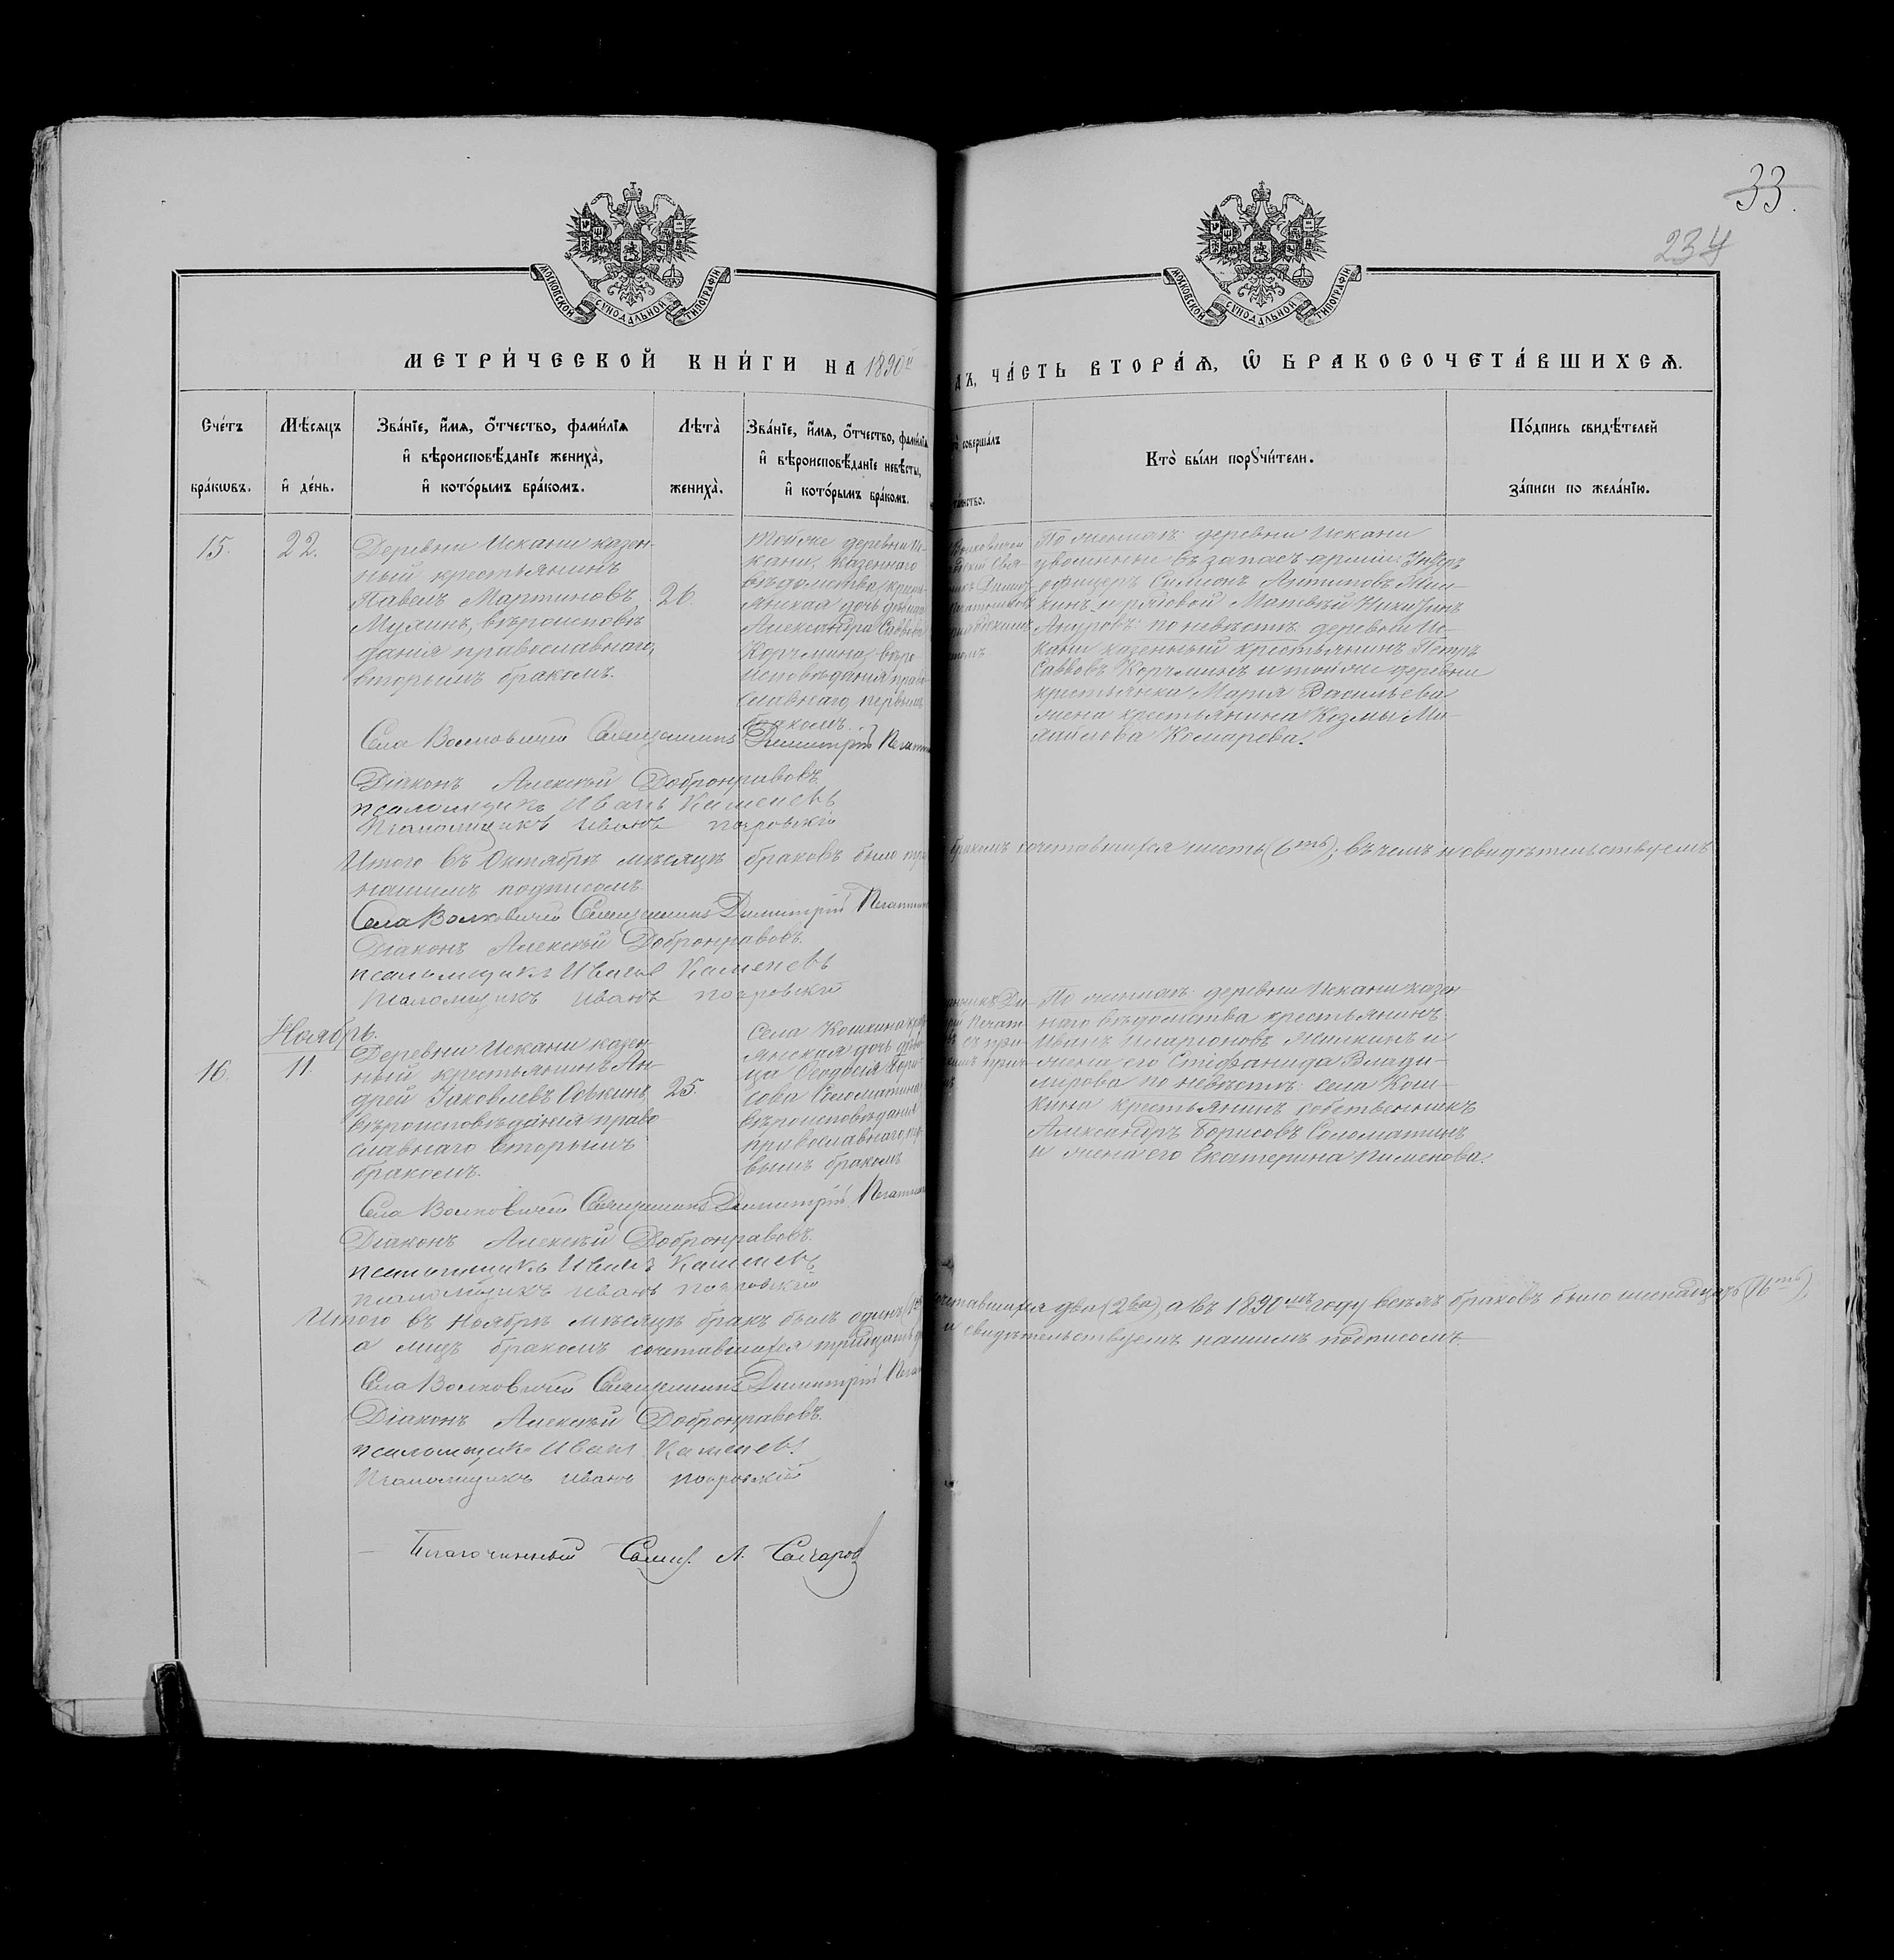 33.
234
МОСКОВСКОЙ СУНОДАЛЬНОЙ ТИПОГРАФІИ
МОСКОВСКОЙ СУНОДАЛЬНОЙ ТИПОГРАФІИ
МЕТРИ́ЧЕСКОЙ КНИ́ГИ НА 1890й
ДЪ, ЧА́СТЬ ВТОРА́Ѧ, Ѡ҆ БРАКОСОЧЕТА́ВШИХСѦ.
Сче́тъ
бра́кѡвъ.
Мѣ́сѧцъ
и҆ де́нь.
Зва́нїе, и҆́мѧ, ѻ҆́тчество, фами́лїѧ
и҆ вѣроисповѣ́данїе жениха̀,
и҆ кото́рымъ бра́комъ.
Лѣта̀
жениха̀.
Зва́нїе, и҆́мѧ, ѻ҆́тчество, фами́лїѧ
и҆ вѣроисповѣ́данїе невѣ́сты,
и҆ кото́рымъ бра́комъ.
соверша́лъ
та́инство.
Кто̀ бы́ли порꙋчи́тели.
По́дпись свидѣ́телей
за́писи по жела́нїю.
15.
22.
Деревни Искани казен-
ный крестьянинъ
Павелъ Мартиновъ
Мулинъ, вѣроисповѣ
данія православнаго,
вторымъ бракомъ.
26.
Тойже деревни Ис-
кани, казеннаго
вѣдомства, крест
янская дочь дѣвица
Александра Саввова
Корчмина, вѣро
исповѣданія право
славнаго, первымъ
бракомъ.
По женихѣ: деревни Искани
уволенные въ запасъ арміи: Унтеръ
офицеръ Симеонъ Антиповъ
и рядовой Матвѣй Никитинъ
по невѣстѣ: деревни Ис-
кани казенный крестьянинъ Петръ
Саввовъ Корчминъ и тойже деревни
крестьянка Марія Васильева
жена крестьянина Козмы Ми-
хайлова Комарева.
Села Волковичей Священникъ Димитрій
Діаконъ Алексѣй Добронравовъ
псаломщикъ Иванъ Каменевъ
Псаломщикъ Иванъ Покровскій
Итого въ Октябрѣ мѣсяцѣ браковъ было три
бракомъ сочетавшихся шесть (6ть); въ чемъ и свидѣтельствуемъ
нашимъ подписомъ.
Села Волковичей Священникъ Димитрій
Діаконъ Алексѣй Доброnравовъ.
псаломщикъ Иванъ Каменевъ
Псаломщикъ Иванъ Покровскій
Ноябрь.
16.
11.
Деревни Искани казен-
ный крестьянинъ Ан-
дрей Іаковлевъ
вѣроисповѣданія право
славнаго вторымъ
бракомъ.
25.
Села Кошкина крес
янская дочь дѣви
ца Ѳеодосія Бори
сова Соломатина
вѣроисповѣданія
православнаго, пер
вымъ бракомъ
По женихѣ: деревни Искани казен-
наго вѣдомства крестьянинъ
Иванъ Иларіоновъ и
жена его Стефанида Влади-
мирова по невѣстѣ: села Кош-
кина крестьянинъ собственникъ
Александръ Борисовъ Соломатинъ
и жена его Екатерина Пименова.
Села Волковичей Священникъ Димитрій
Діаконъ Алексѣй Доброnравовъ.
псаломщикъ Иванъ Каменевъ
Псаломщикъ Иванъ Покровскій
Итого въ Ноябрѣ мѣсяцѣ бракъ былъ одинъ
сочетавшихся два (2ва), а въ 1890мъ году всѣхъ браковъ было шеснадцать (16ть),
а лицъ бракомъ сочетавшихся тридцать
и свидѣтельствуемъ нашимъ подписомъ.
Села Волковичей Священникъ Димитрій
Діаконъ Алексѣй Доброnравовъ.
псаломщикъ Иванъ Каменевъ
Псаломщикъ Иванъ Покровскій
Благочинный Свящ. А.